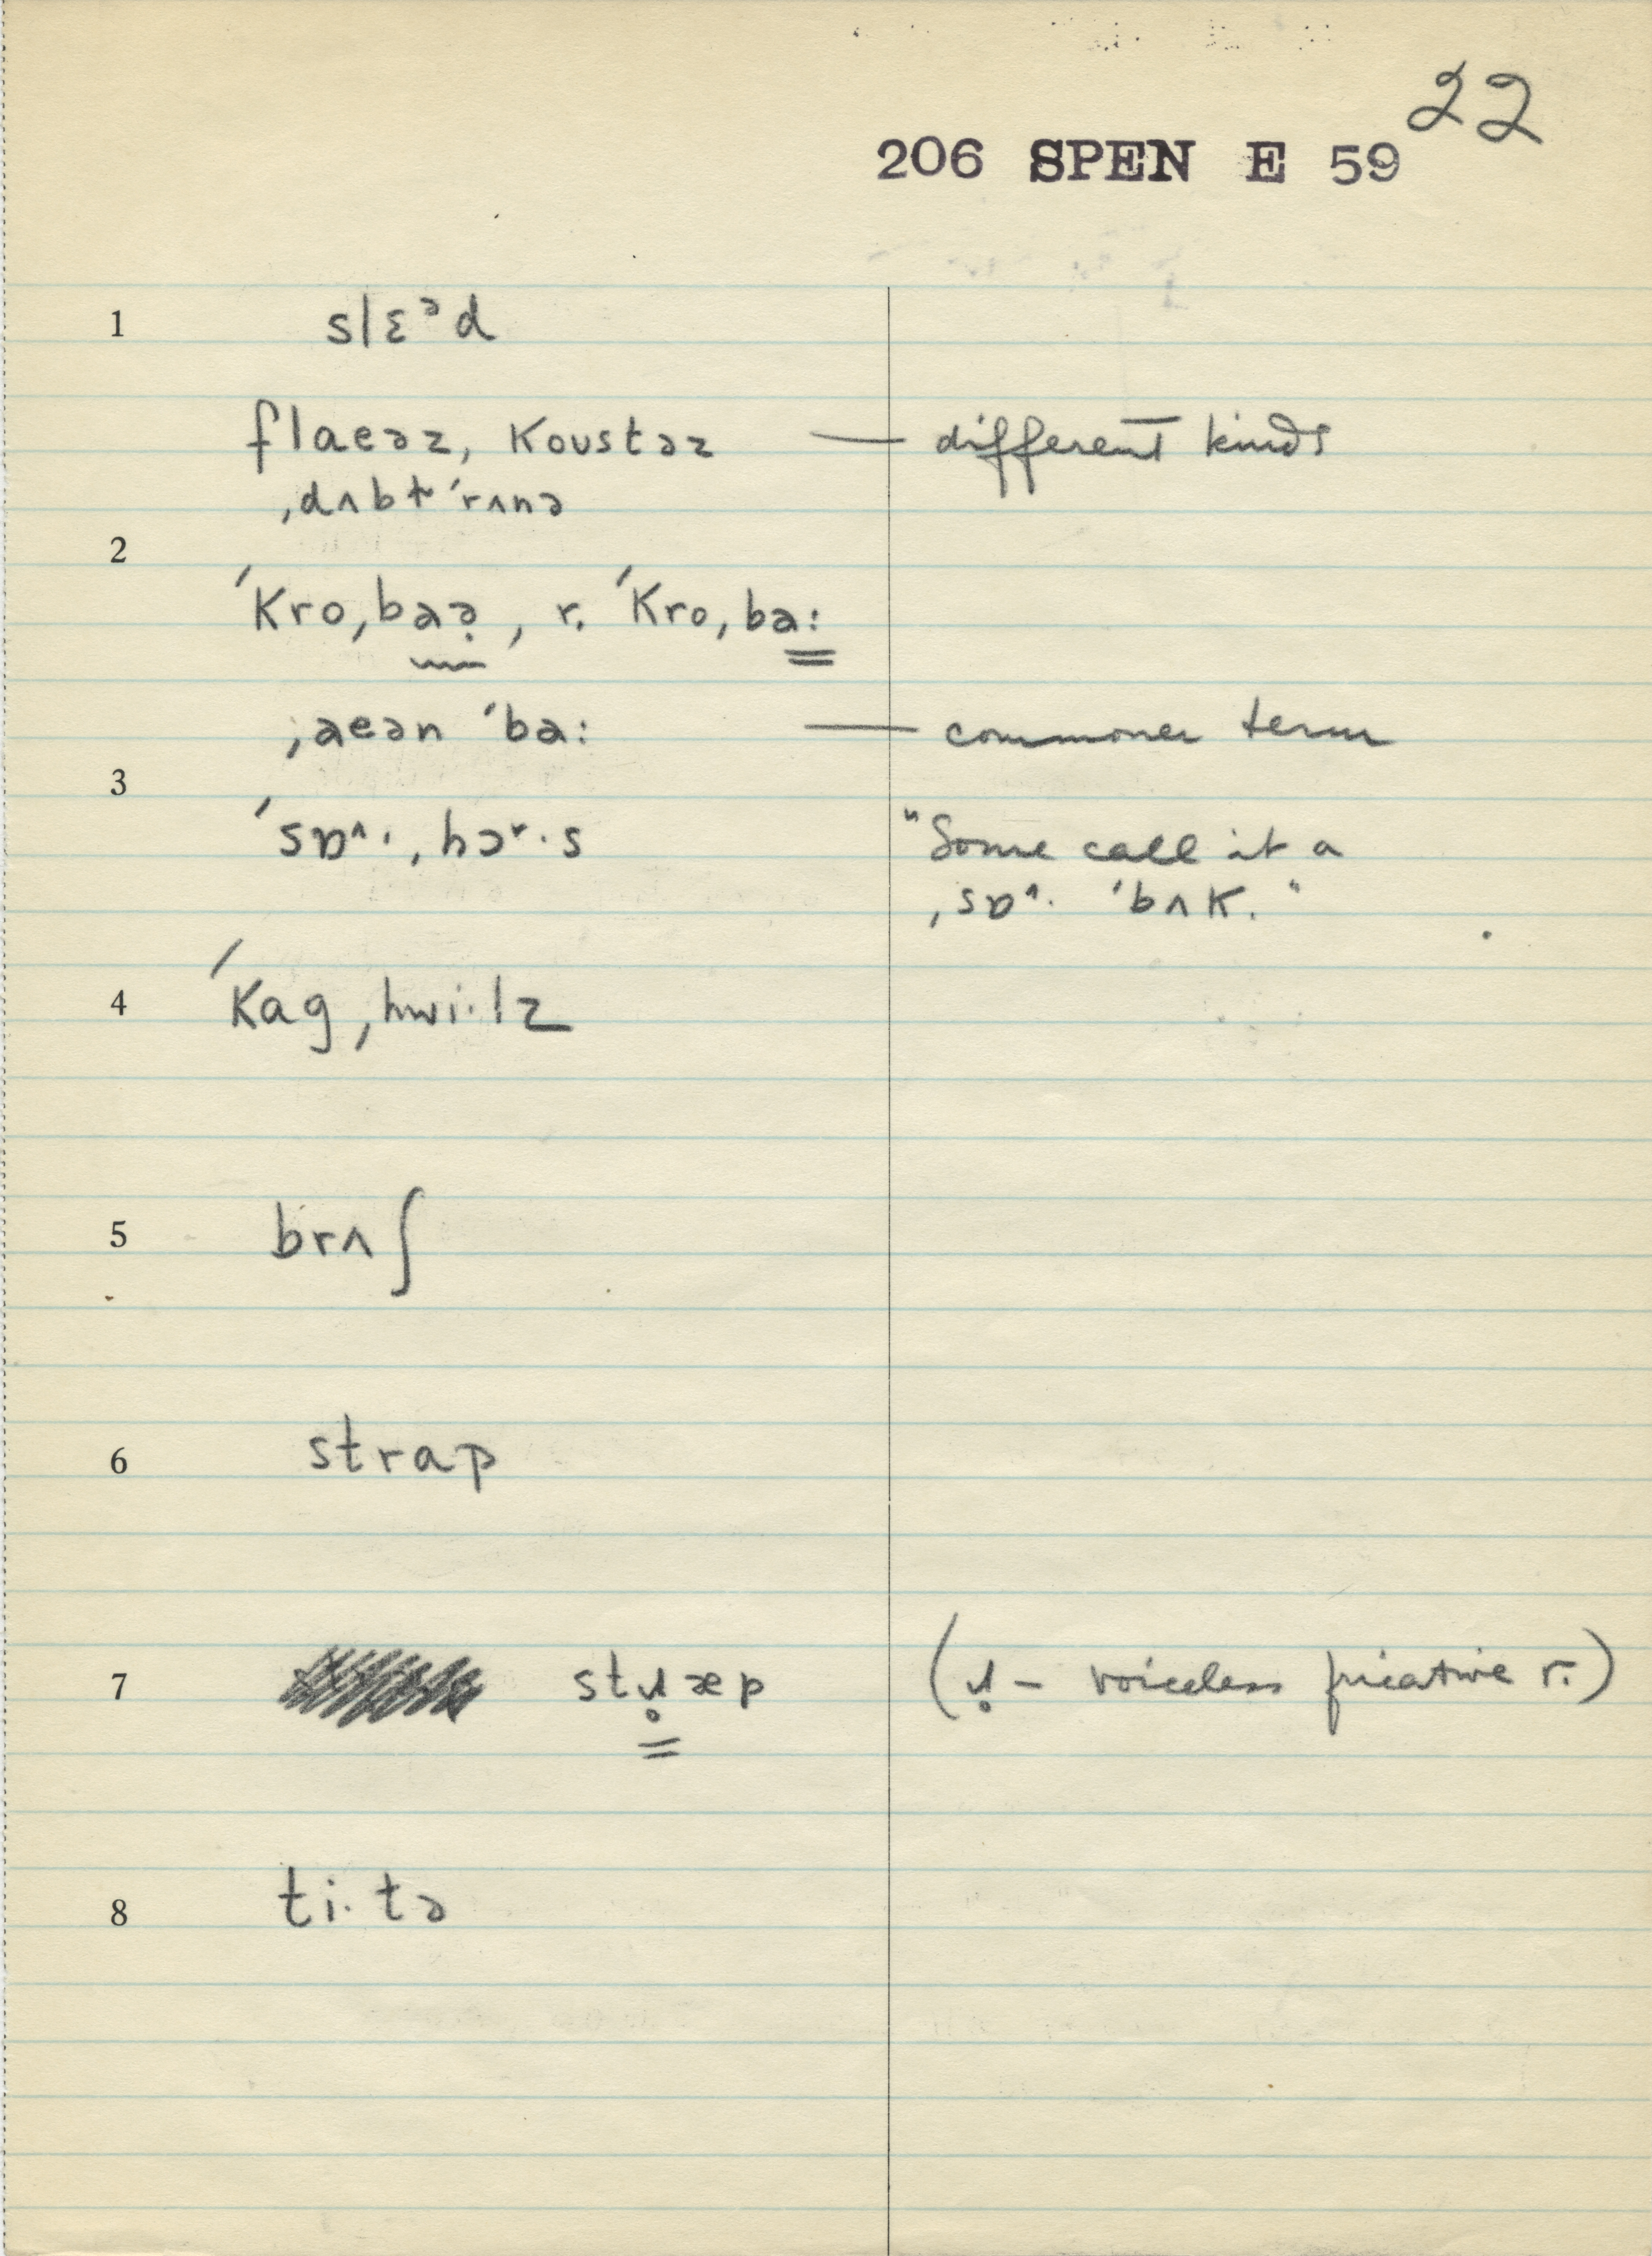 22
206 SPEN E 59
1 slɛᵊd
flaeəz, koustəz — different kinds
ˌdʌbɫ ˈrʌnə
2
ˈkroˌbaə̣, r. ˈkroˌba:
ˌaeən ˈba: — commoner term
3
ˈsɒ^·ˌhɔʳ·s "Some call it a
ˌsɒ^· ˈbʌk."
4 ˈkagˌhwi·lz
5 brʌʃ
6 strap
7 stɹ̥æp (ɹ̥ – voiceless fricative r.)
8 ti·tə